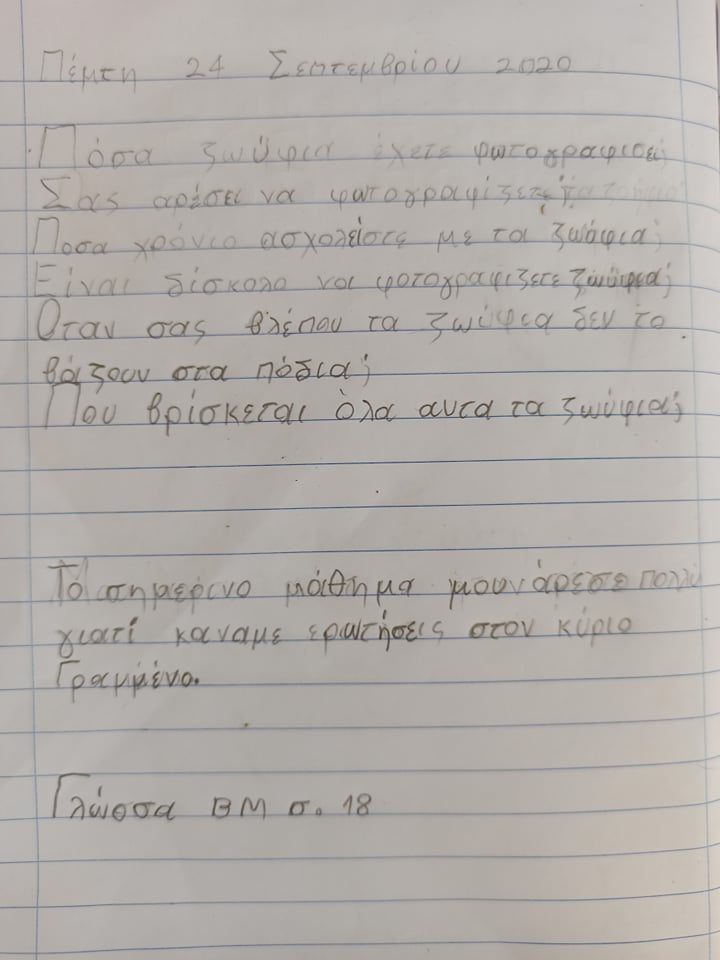 Πέμπτη 24 Σεπτεμβρίου 2020
Πόσα ζωύφια έχετε φωτογραφισει;
Σας αρέσει να φωτογραφίζετε
Ποσα χρόνια ασχολείστε με τα ζωύφια;
Είναι δίσκολο να φοτογραφιζετε ζωύφια;
Οταν σας βλέπου τα ζωύφια δεν το
βάζουν στα πόδια;
Που βρίσκεται όλα αυτα τα ζωύφια;
Το σημερινο μάθημα μου άρεσε πολλί
γιατί καναμε ερωτήσεις στον κύριο
Γραμμένο.
Γλώσσα ΒΜ σ. 18